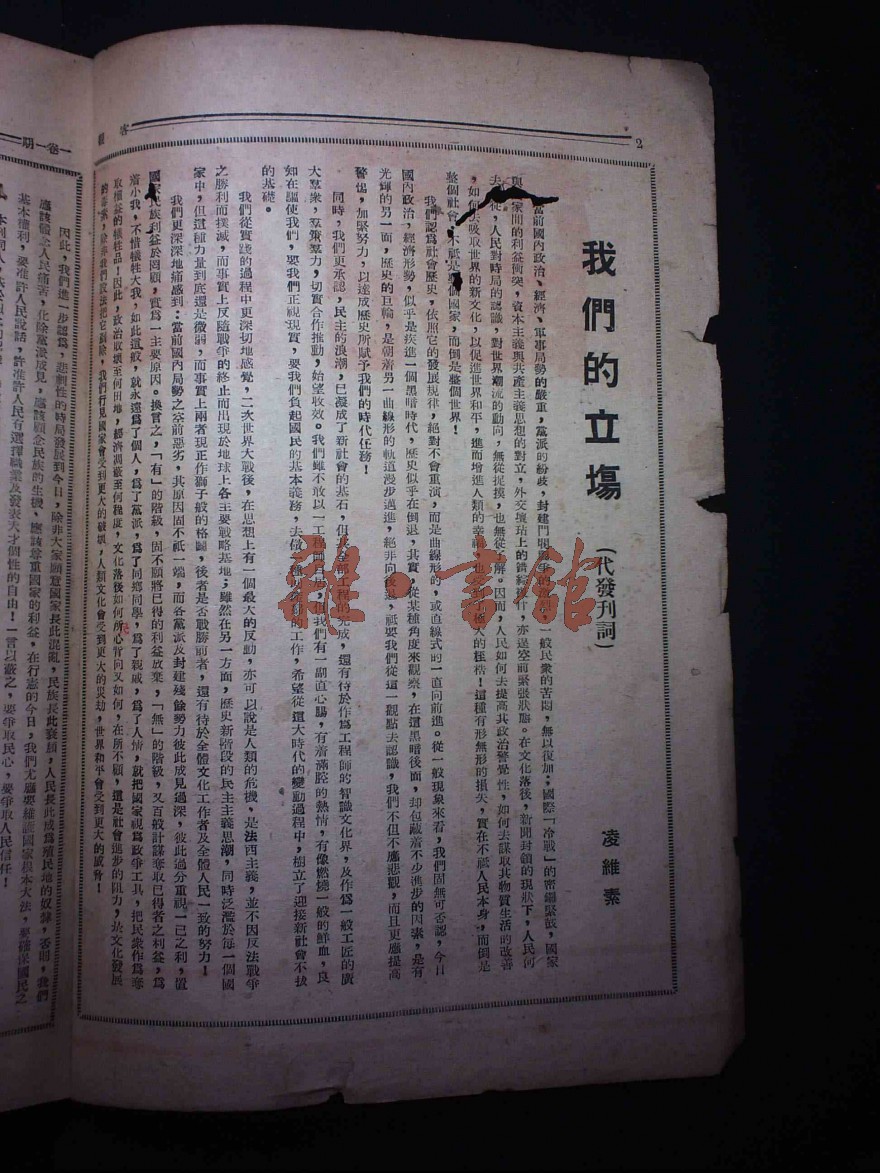 一卷一期
2
我們的立場
(代發刊詞)
凌維素
當前國內政治、經濟、軍事局勢的嚴重,黨派的紛歧,封建鬥爭的,一般民衆的苦悶,無以復加;國際「冷戰」的密鑼緊鼓,國家
與國家間的利益衝突,資本主義與共產主義思想的對立,外交壇坫上的錯綜,亦達空前緊張狀態。在文化落後,新聞封鎖的現狀下,人民何
去何從,人民對時局的認識,對世界潮流的動向,無從捉摸,也無從了解。因而,人民如何去提高其政治警覺性,如何去謀取其物質生活的改善
,如何去吸取世界的新文化,以促進世界和平,進而增進人類的幸福,也受到了極大的桎梏!這種有形無形的損失,實在不祇人民本身,而倒是
整個社會,不祇是整個國家,而倒是整個世界!
我們認爲社會歷史,依照它的發展規律,絕對不會重演,而是曲線形的,或直線式的一直向前進。從一般現象來看,我們固無可否認,今日
國內政治,經濟形勢,似乎是疾進一個黑暗時代,歷史似乎在倒退,其實,從某種角度來觀察,在這黑暗後面,却包藏着不少進步的因素,是有
光輝的另一面,歷史的巨輪,是朝着另一曲線形的軌道漫步邁進,絕非向後退,祇要我們從這一觀點去認識,我們不但不應悲觀,而且更應提高
警惕,加緊努力,以達成歷史所賦予我們的時代任務!
同時,我們更承認,民主的浪潮,已凝成了新社會的基石,但全部工程的完成,還有待於作爲工程師的智識文化界,及作爲一般工匠的廣
大羣衆,羣策羣力,切實合作推動,始望收效。我們雖不敢以工程師自居,但我們有一副直心腸,有着滿腔的熱情,有像燃燒一般的鮮血,良
知在驅使我們,要我們正視現實,要我們負起國民的基本義務,去做的工作,希望從這大時代的變動過程中,樹立了迎接新社會不拔
的基礎。
我們從實踐的過程中更深切地感覺,二次世界大戰後,在思想上有一個最大的反動,亦可以說是人類的危機,是法西主義,並不因反法戰爭
之勝利而撲滅,而事實上反隨戰爭的終止而出現於地球上各主要戰略基地;雖然在另一方面,歷史新階段的民主主義思潮,同時泛濫於每一個國
家中,但這種力量到底還是微弱,而事實上兩者現正作獅子般的格鬥,後者是否戰勝前者,還有待於全體文化工作者及全體人民一致的努力!
我們更深深地痛感到:當前國內局勢之空前惡劣,其原因固不祇一端,而各黨派及封建殘餘勢力彼此成見過深,彼此過分重視一己之利,置
國家民族利益於罔顧,實爲一主要原因。換言之,「有」的階級,固不願將已得的利益放棄,「無」的階級,又百般計謀奪取已得者之利益,爲
着小我,不惜犧牲大我,如此這般,就永遠爲了個人,爲了黨派,爲了同鄉同學,爲了親戚,爲了人情,就把國家視爲政爭工具,把民衆作爲奪
取權益的犧牲品!因此,政治敗壞至何田地,經濟凋敝至何程度,文化落後如何所心背向又如何,在所不顧,這是社會進步的阻力,是文化發展
的毒素,除非我們設法把它剷除,我們行見國家會受到更大的破壞,人類文化會受到更大的災劫,世界和平會受到更大的威脅!
因此,我們進一步認爲,悲劇性的時局發展到今日,除非大家願意國家長此混亂,民族長此衰頹,人民長此成爲殖民地的奴隸,否則,我們
應該體念人民痛苦,化除黨派成見,應該顧念民族的生機、應該尊重國家的利益,在行憲的今日,我們尤應要維護國家根本大法,要確保國民之
基本權利,要准許人民說話,許准許人民有選擇職業及發表大才個性的自由!一言以蔽之,要爭取民心,要爭取人民信任!
雜·書館